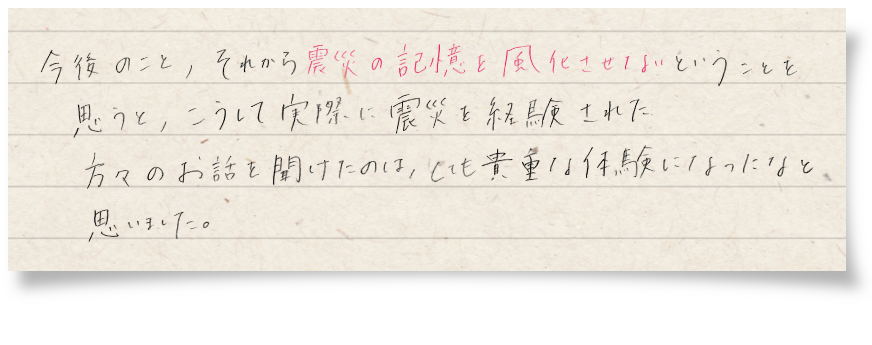 今後のこと，それから震災の記憶を風化させないということを
思うと，こうして実際に震災を経験された
方々のお話を聞けたのは，とても貴重な体験になったなと
思いました。